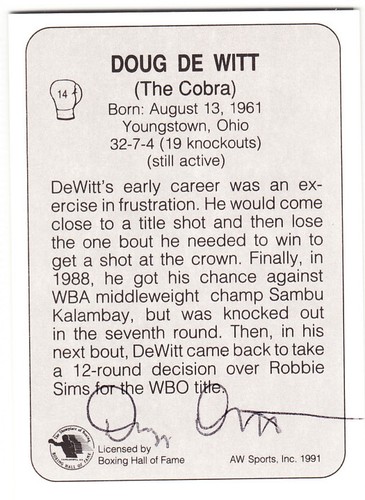 DOUG DE WITT
14
(The Cobra)
Born: August 13, 1961
Youngstown, Ohio
32-7-4 (19 knockouts)
(still active)
DeWitt's early career was an ex-
ercise in frustration. He would come
close to a title shot and then lose
the one bout he needed to win to
get a shot at the crown. Finally, in
1988, he got his chance against
WBA middleweight champ Sambu
Kalambay, but was knocked out
in the seventh round. Then, in his
next bout, DeWitt came back to take
a 12-round decision over Robbie
Sims for the WBO title.
Licensed by
Boxing Hall of Fame
AW Sports, Inc. 1991